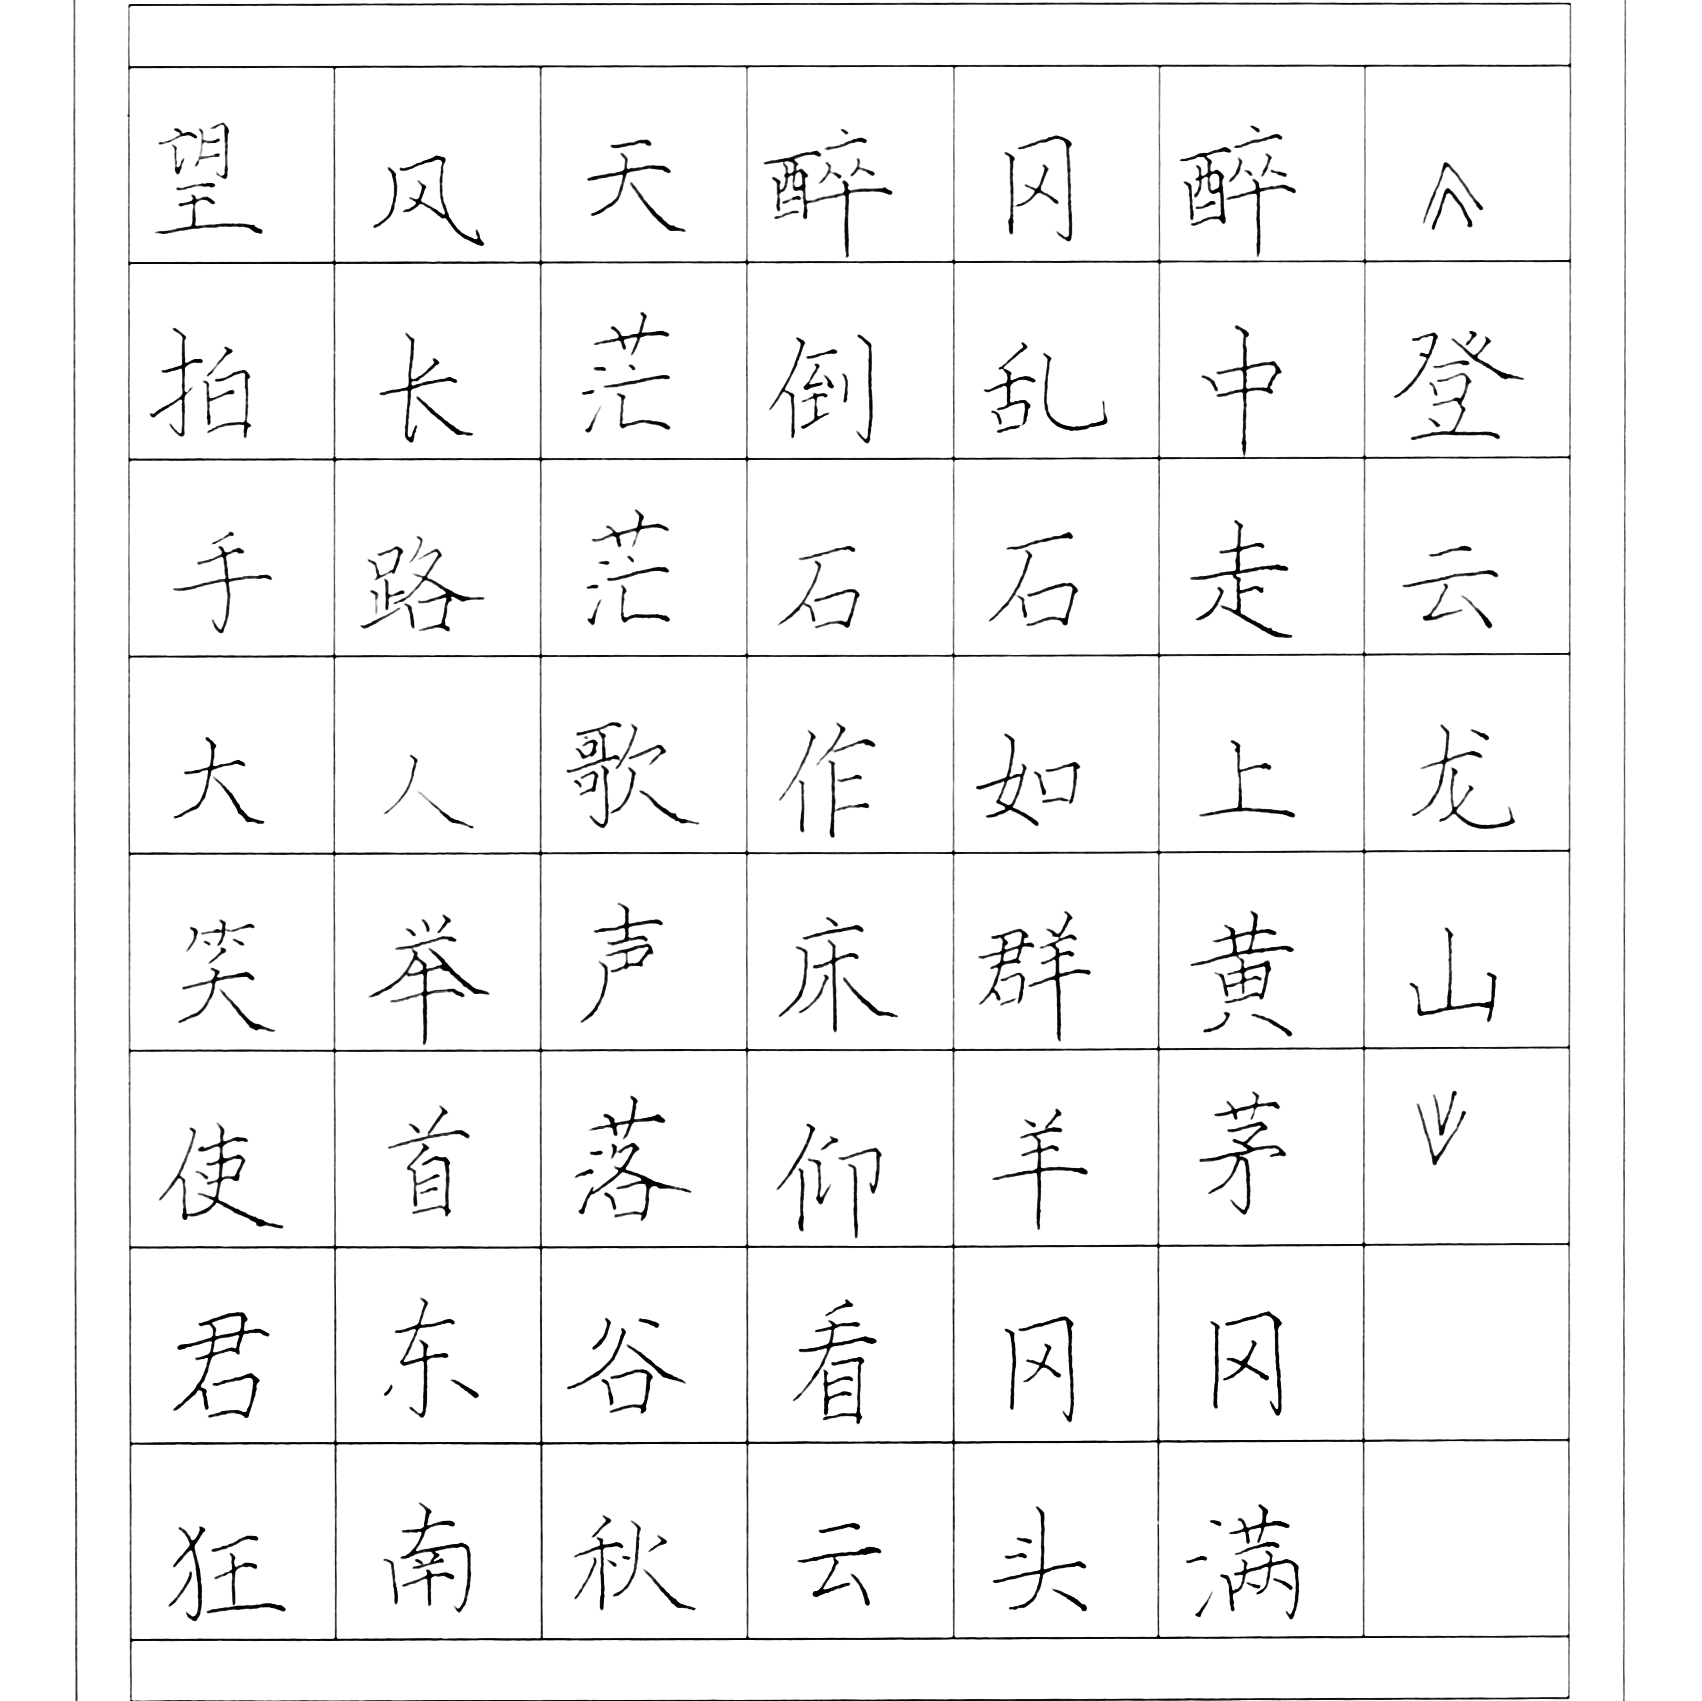 《登云龙山》
醉中走上黄茅冈满
冈乱石如群羊冈头
醉倒石作床仰看云
天茫茫歌声落谷秋
风长路人举首东南
望拍手大笑使君狂